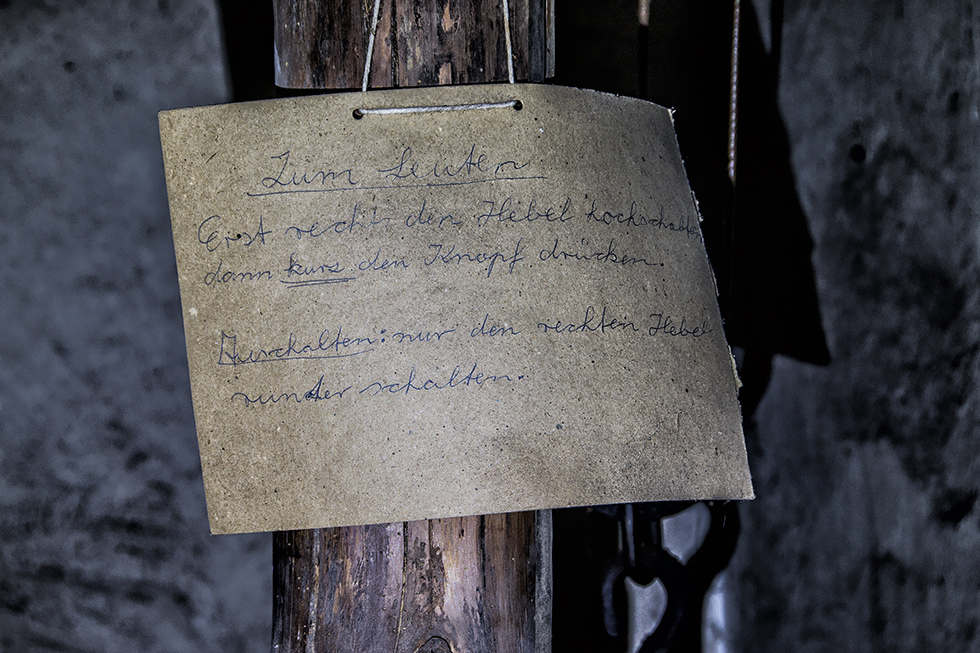 Zum Leuten
Erst rechts den Hebel hochschalten
dann kurz den Knopf drücken.
Ausschalten: nur den rechten Hebel
runter schalten.